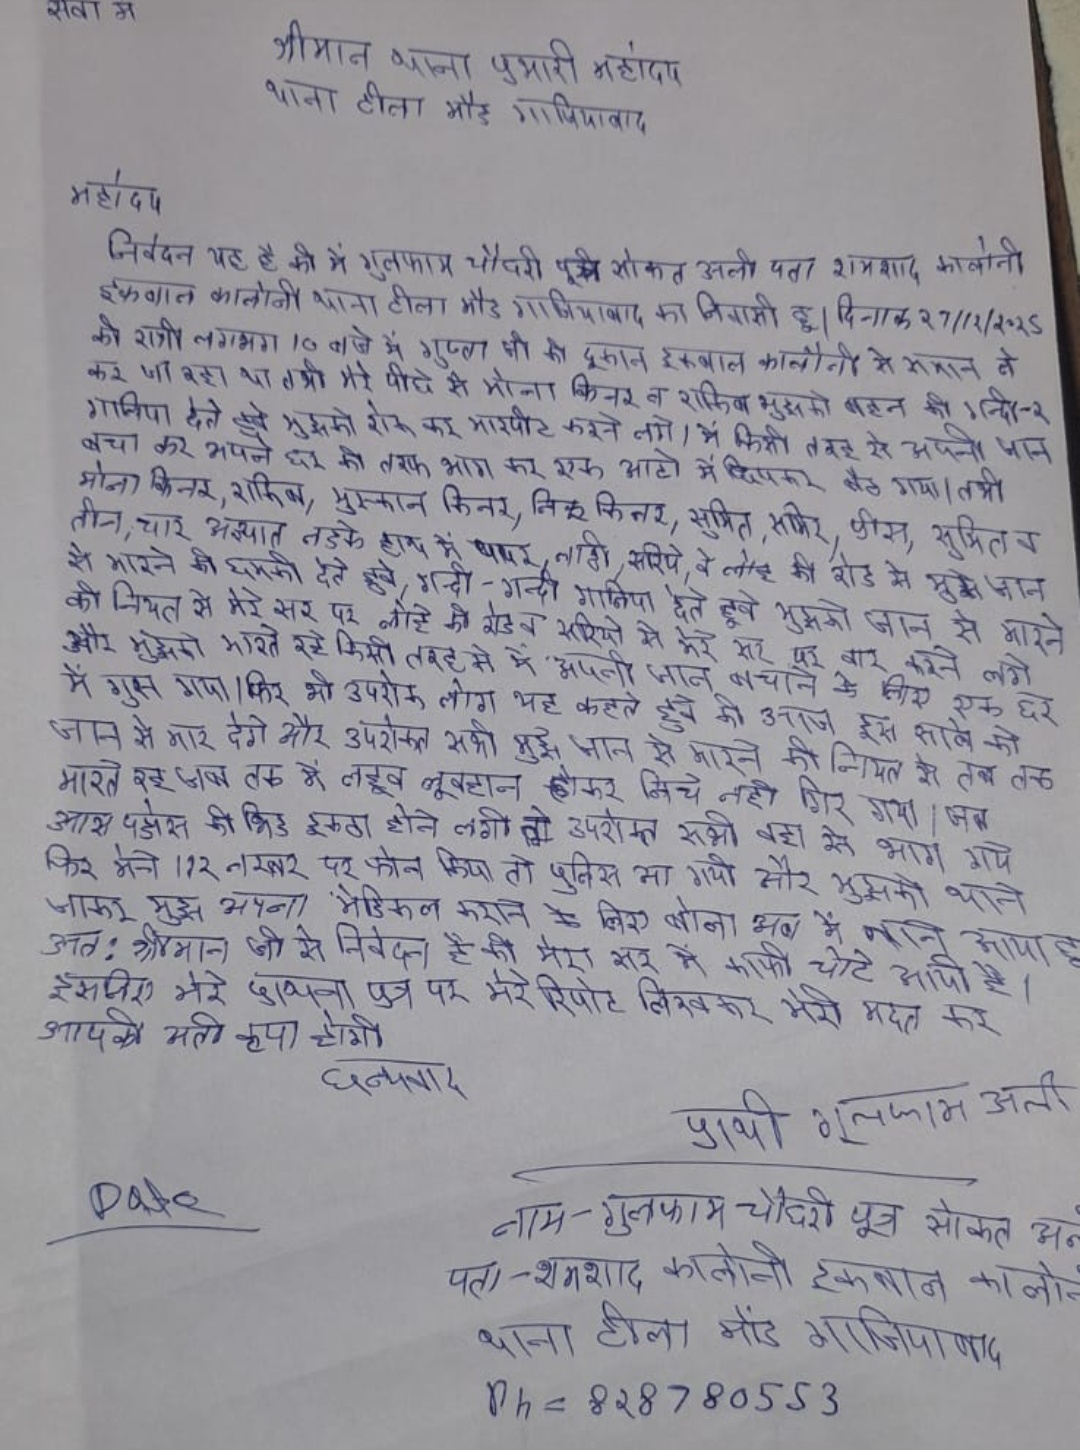 सेवा में
श्रीमान थाना प्रभारी महोदय
थाना टीला मौड गाजियाबाद
महोदय
निवेदन यह है की में गुलफाम चौदरी पुत्र सोकत अली पता शमशाद कालोनी
इकबाल कालोनी थाना टीला मौड गाजियाबाद का निवासी हू। दिनाक २7/12/२०२5
को रात्री लगभग 10 बजे में गुप्ता जी की दूकान इकबाल कालोनी से समान ले
कर जा रहा था तभी मेरे पीछे से मोना किनर व राकिब मुझको बहन की गन्दी-२
गालिया देते हुवे मुझको रोक कर मारपीट करने लगे। में किसी तरह से अपनी जान
बचा कर अपने घर की तरफ भाग कर एक आटो में छिपकर बैठ गया। तभी
मोना किनर, राकिब, मुस्कान किनर, किनर, सुमित, समिर, सुमित व
तीन, चार अग्यात लडके हाथ में पथर, लाठी, सरिये, वे लोहे की रोड से मुझे जान
से मारने की धमकी देते हुवे, गन्दी-गन्दी गालिया देते हुवे मुझको जान से मारने
की नियत से मेरे सर पर लोहे की रोड व सरियो से मेरे सर पर वार करने लगे
और मुझको मारते रहे किसी तरह से में अपनी जान बचाने के लिए एक घर
में गुस गया। फिर भी उपरोक लोग यह कहते हुवे की आज इस साले को
जान से मार देगे और उपरोक्त सभी मुझे जान से मारने की नियत से तब तक
मारते रहे जब तक में लहूव लूवहान होकर निचे नही गिर गया। जब
आस पडोस की भिड इकठा होने लगी तो उपरोक्त सभी वहा से भाग गये
फिर मेने 112 नम्बर पर फोन किया तो पुलिस आ गयी और मुझको थाने
जाकर मुझे अपना मेडिकल कराने के लिए बोला अब में थाने आया हू
अत: श्रीमान जी से निवेदन है की मेरा सर में काफी चोटे आयी है।
इसलिए मेरे प्राथना पत्र पर मेरे रिपोट लिखकर मेरी मदत कर
आपकी मती कृपा होगी
धन्यवाद
प्राथी गुलफाम अली
Date
नाम-गुलफाम चौदरी पुत्र सोकत
पता-शमशाद कालोनी इकबाल
थाना टीला मौड गाजियाबाद
Ph = 828780553